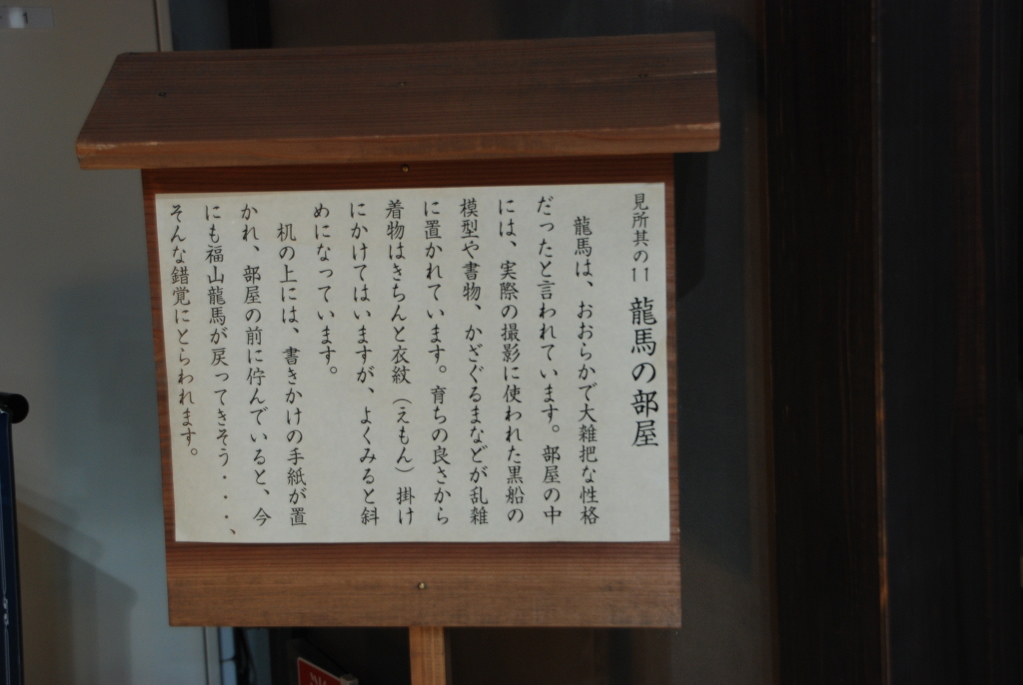 見所其の11 龍馬の部屋
龍馬は、おおらかで大雑把な性格
だったと言われています。部屋の中
には、実際の撮影に使われた黒船の
模型や書物、かざぐるまなどが乱雑
に置かれています。育ちの良さから
着物はきちんと衣紋（えもん）掛け
にかけてはいますが、よくみると斜
めになっています。
机の上には、書きかけの手紙が置
かれ、部屋の前に佇んでいると、今
にも福山龍馬が戻ってきそう・・・、
そんな錯覚にとらわれます。
1